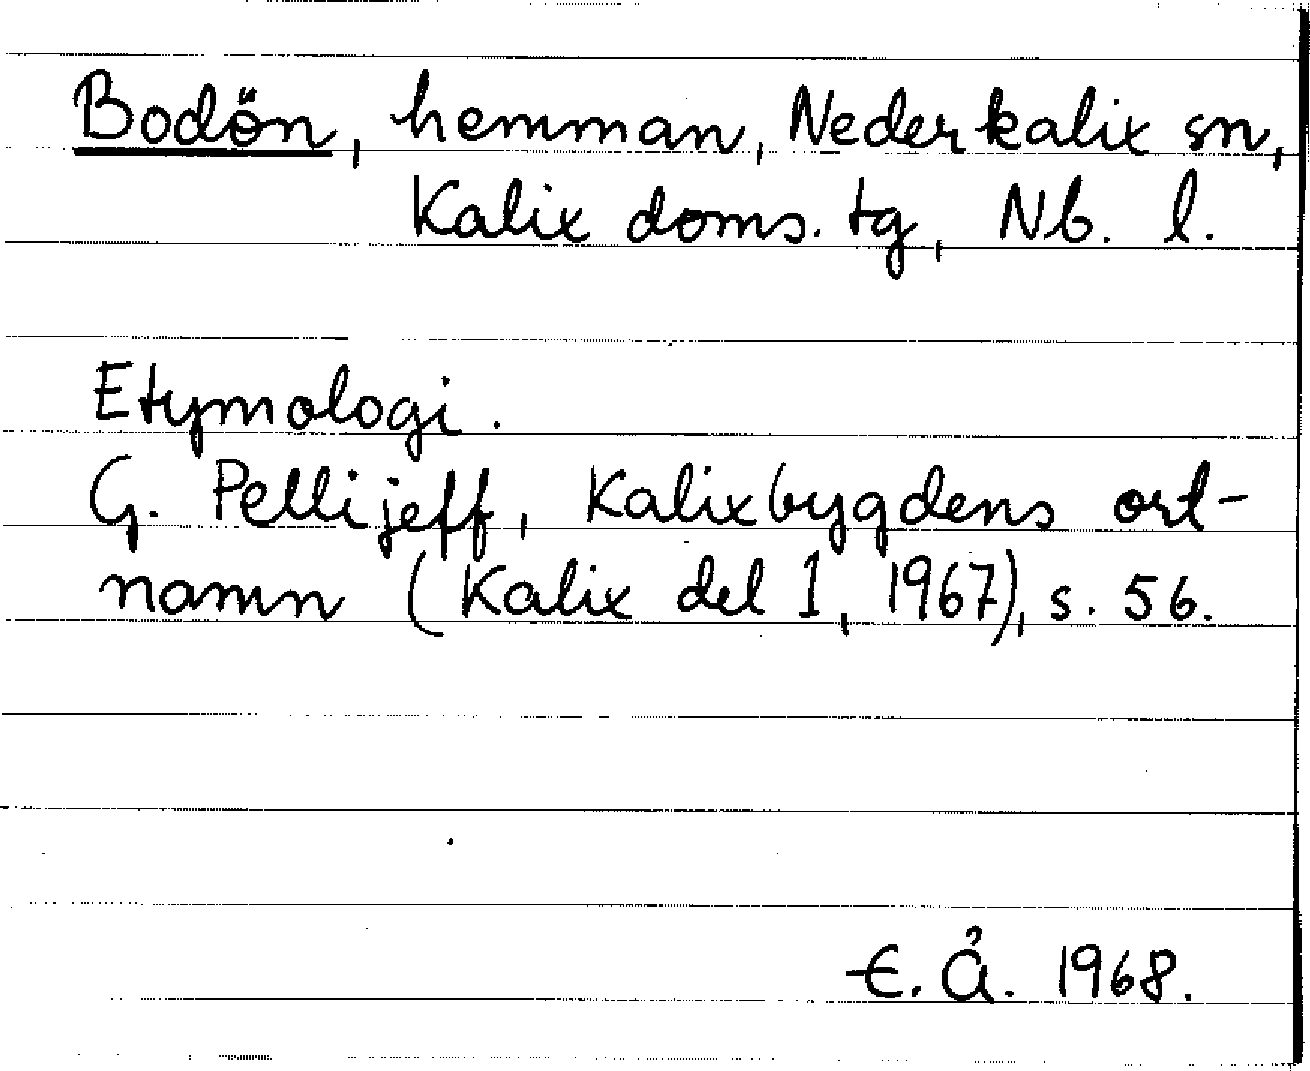 Bodön, hemman, Nederkalix sn,
Kalix doms. tg, Nb. l.
Etymologi.
G. Pellijeff, Kalixbygdens ort-
namn (Kalix del 1, 1967), s. 56.
E. Å. 1968.